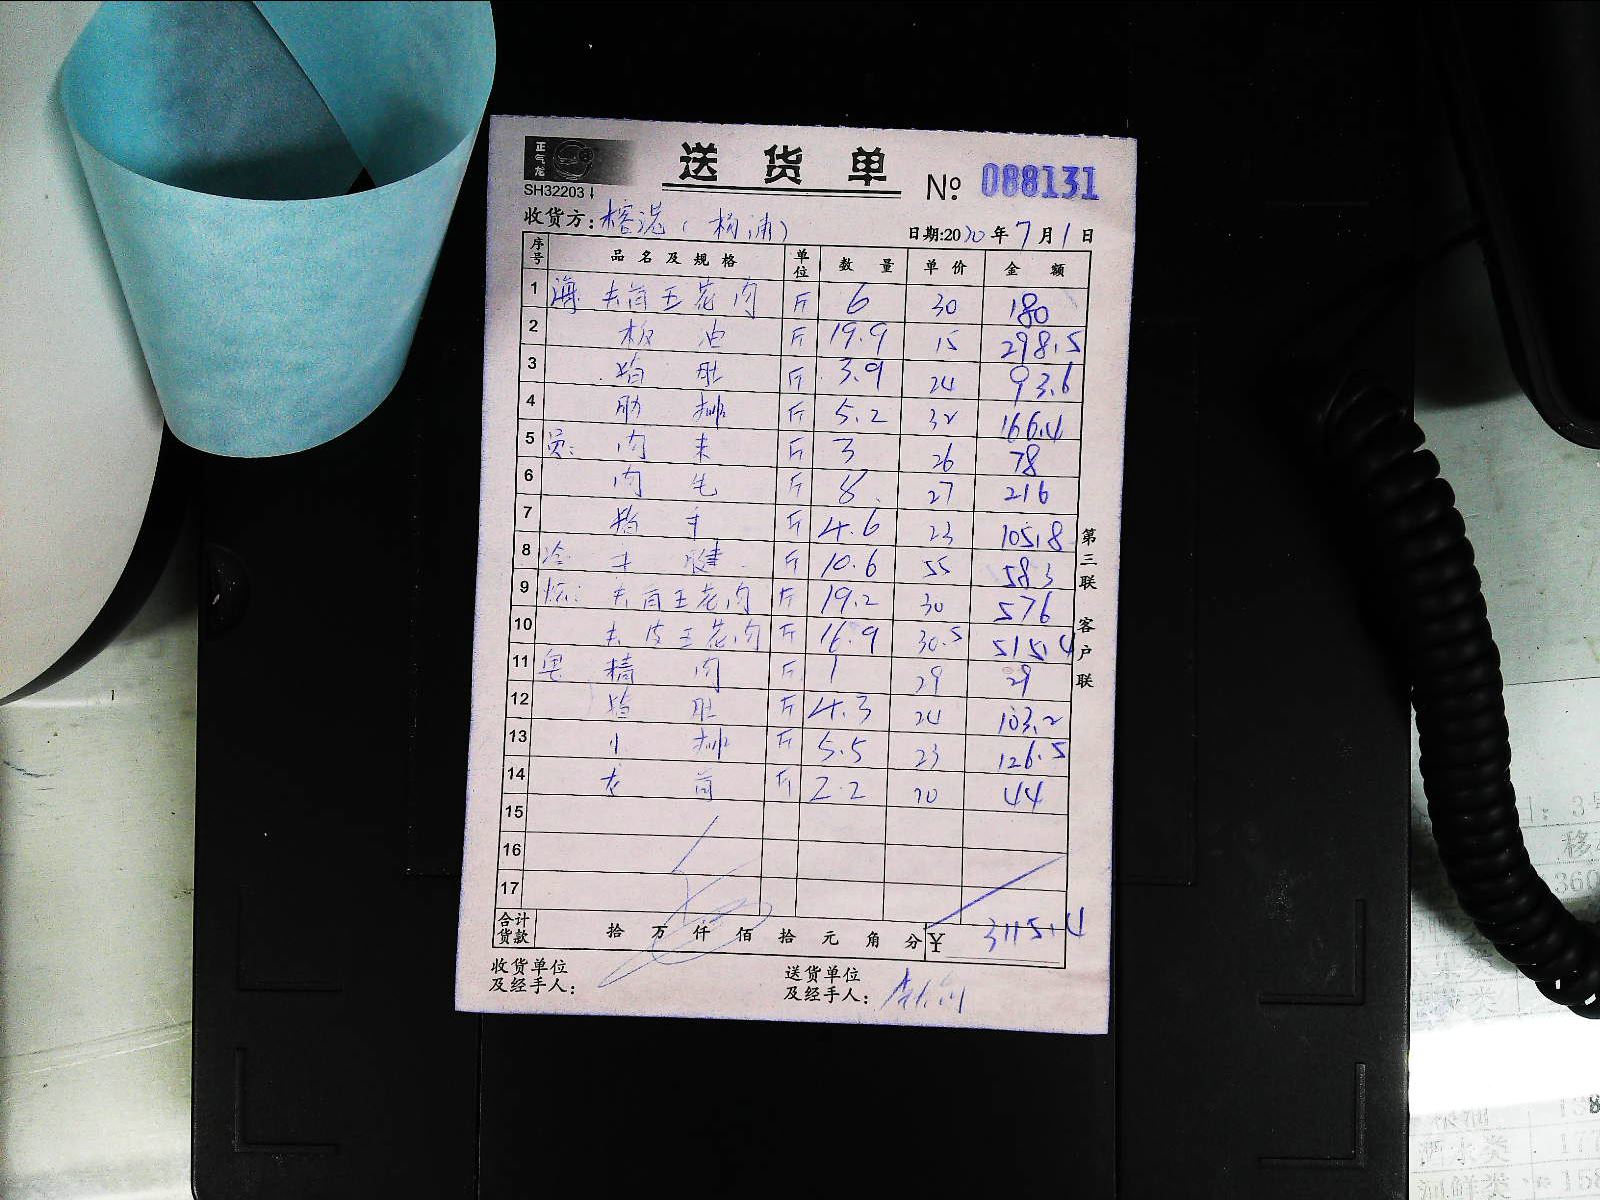 正气龙
送货单 № 088131
SH32203
收货方: 榕港(杨浦) 日期:2020年7月1日
序号 品名及规格 单位 数量 单价 金额
1 海: 去苗五花肉 斤 6 30 180
2 板油 斤 19.9 15 298.5
3 猪肚 斤 3.9 24 93.6
4 肋排 斤 5.2 32 166.4
5 员: 肉末 斤 3 26 78
6 肉 斤 8 27 216
7 猪手 斤 4.6 23 105.8
8 冷: 牛腱 斤 10.6 55 583
9 去苗五花肉 斤 19.2 30 576
10 去皮五花肉 斤 16.9 30.5 515.4
11 粤 精肉 斤 1 29 29
12 猪肚 斤 4.3 24 103.2
13 小排 斤 5.5 23 126.5
14 斤 2.2 20 44
15
16
17
合计货款 拾 万 仟 佰 拾 元 角 分 ¥ 3115.4
收货单位及经手人:
送货单位及经手人:
第三联 客户联
移
360
酒水类 177
河鲜类 158